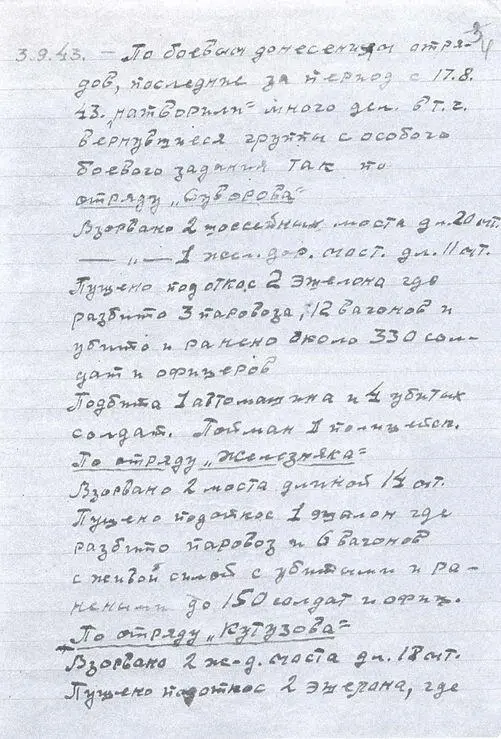 3.9.43. – По боевым донесениям отря-
дов, последние за период с 17.8.
43. „натворили" много дел. в т.ч.
вернувшиеся группы с особого
боевого задания так по
отряду „Суворова"
Взорвано 2 шоссейных моста дл. 20 мт.
— „ — 1 жел. дор. мост. дл. 11 мт.
Пущено под откос 2 эшелона где
разбито 3 паровоза, 12 вагонов и
убито и ранено около 330 сол-
дат и офицеров
Подбита 1 автомашина и 4 убитых
солдат. Пойман 1 полицейск.
По отряду „Железняка"
Взорвано 2 моста длиной 14 мт.
Пущено под откос 1 эшалон где
разбито паровоз и 6 вагонов
с живой силой с убитыми и ра-
неными до 150 солдат и офиц.
По отряду „Кутузова"
Взорвано 2 ж-д. моста дл. 18 мт.
Пущено под откос 2 эшелона, где